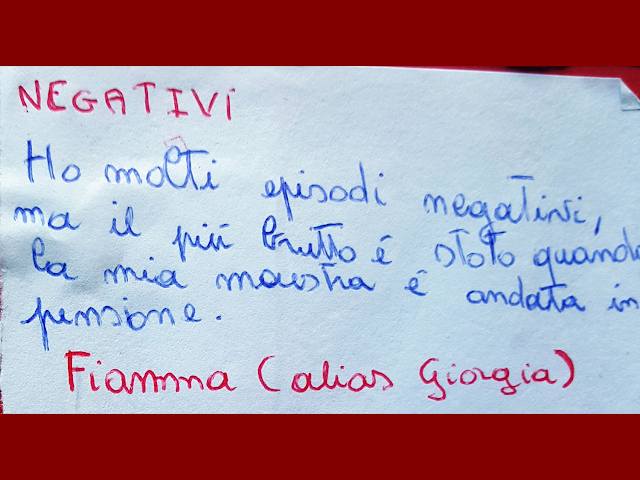 NEGATIVI
Ho molti episodi negativi,
ma il più brutto é stato quando
la mia maestra é andata in
pensione.
Fiamma (alias Giorgia)